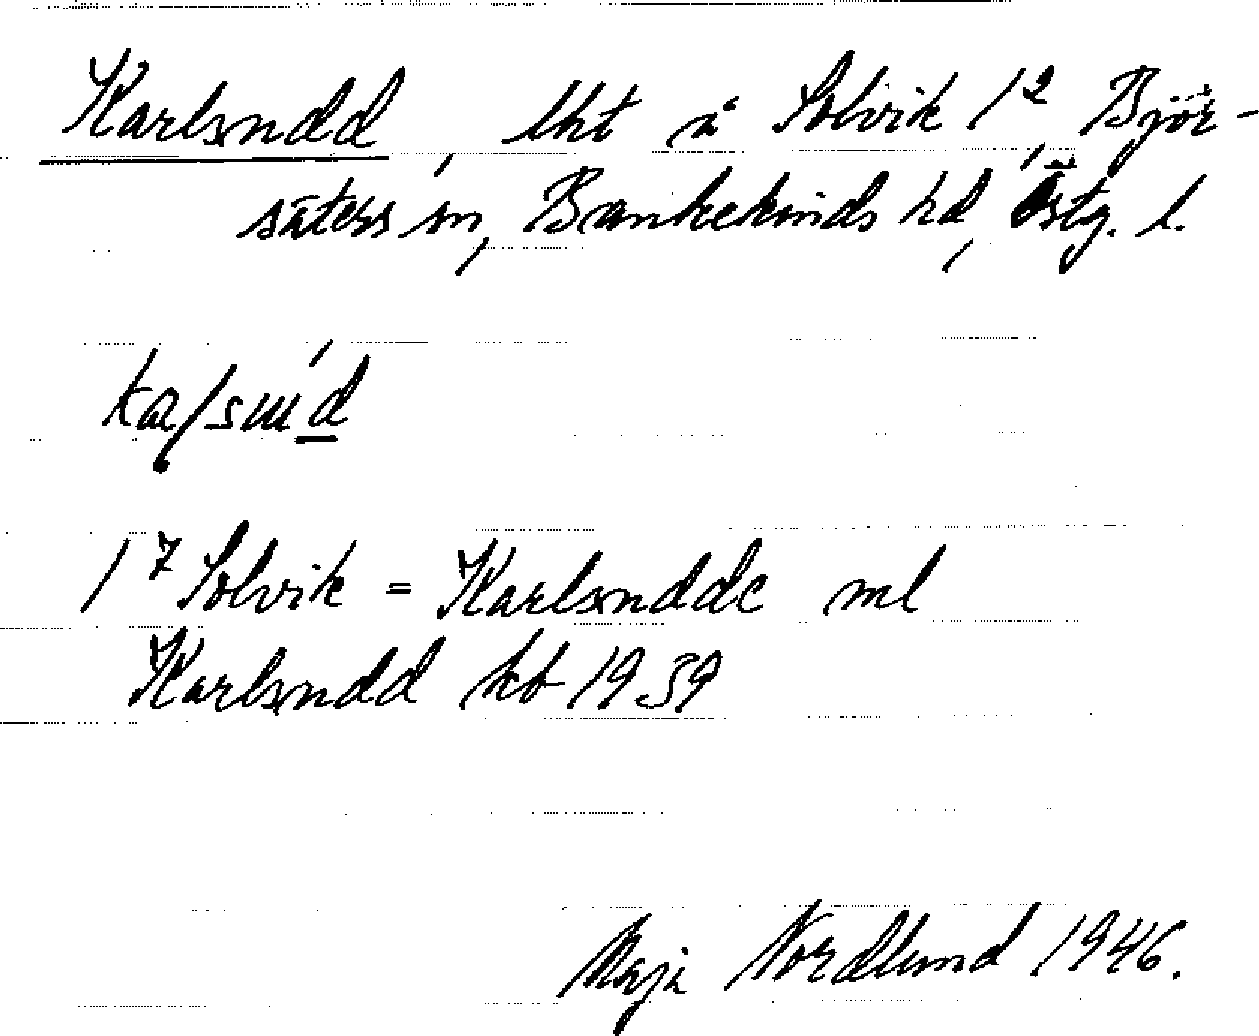 Karlsudd, lht å Solvik 1², Björ-
säters sn, Bankekinds hd, Östg. l.
1⁷ Solvik = Karlsudde ml
Karlsudd kb 1939
Maja Nordlund 1946.